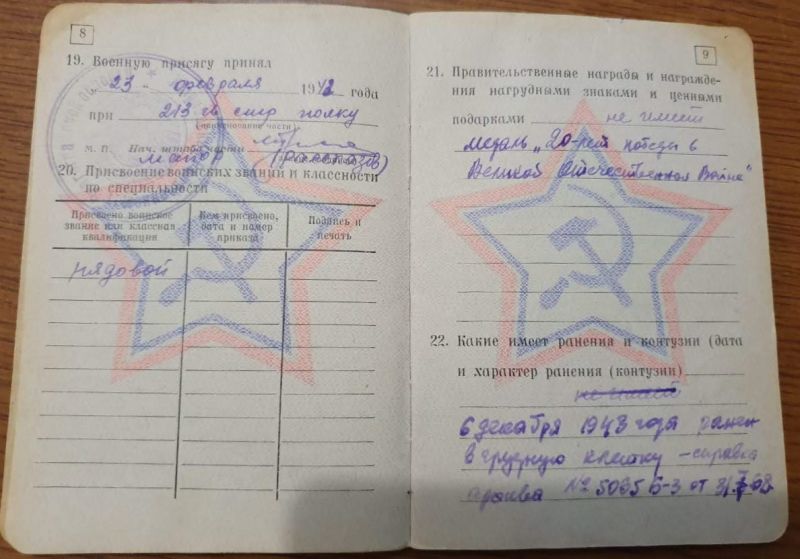 8
19. Военную присягу принял
23 февраля 1942 года
при 213 гв стр полку
(наименование части)
М. П. Нач. штаба части
майор
20. Присвоение воинских званий и классности
по специальности
Присвоено воинское звание или классная квалификация
Кем присвоено, дата и номер приказа
Подпись и печать
рядовой
9
21. Правительственные награды и награжде-
ния нагрудными знаками и ценными
подарками не имеет
медаль „20 лет победы в
Великой Отечественной Войне"
22. Какие имеет ранения и контузии (дата
и характер ранения (контузии)
не имеет
6 декабря 1943 года ранен
в грудную клетку – справка
архива № 5065 Б-3 от